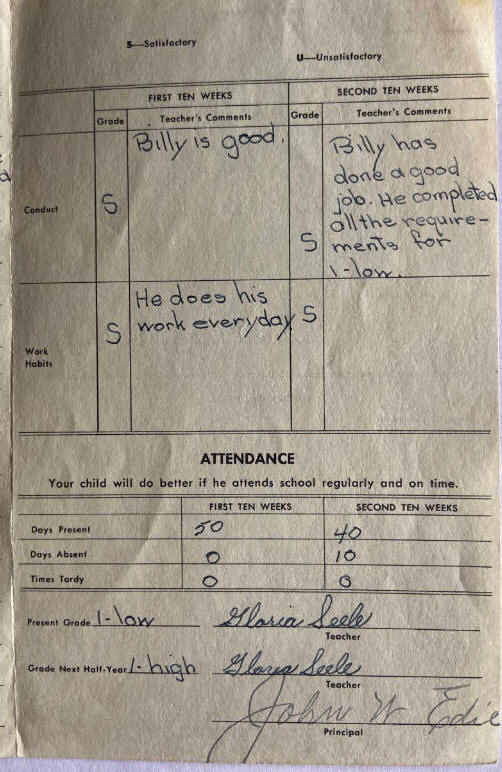 S—Satisfactory
U—Unsatisfactory
FIRST TEN WEEKS
SECOND TEN WEEKS
Grade
Teacher's Comments
Grade
Teacher's Comments
Conduct
S
Billy is good.
S
Billy has
done a good
job. He completed
all the require-
ments for
1-low.
Work
Habits
S
He does his
work everyday
S
ATTENDANCE
Your child will do better if he attends school regularly and on time.
FIRST TEN WEEKS SECOND TEN WEEKS
Days Present 50 40
Days Absent 0 10
Times Tardy 0 0
Present Grade 1-low Gloria Seele
Teacher
Grade Next Half-Year 1-high Gloria Seele
Teacher
John W Edie
Principal